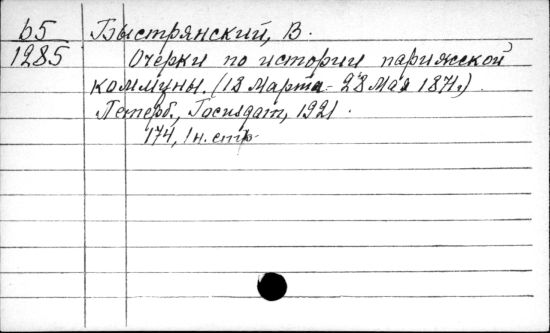 б5
1285
Быстрянский, В.
Очерки по истории парижской
коммуны. (18 Марта - 28 Мая 1871.)
Петерб., Госиздат, 1921.
174, 1 н. стр.